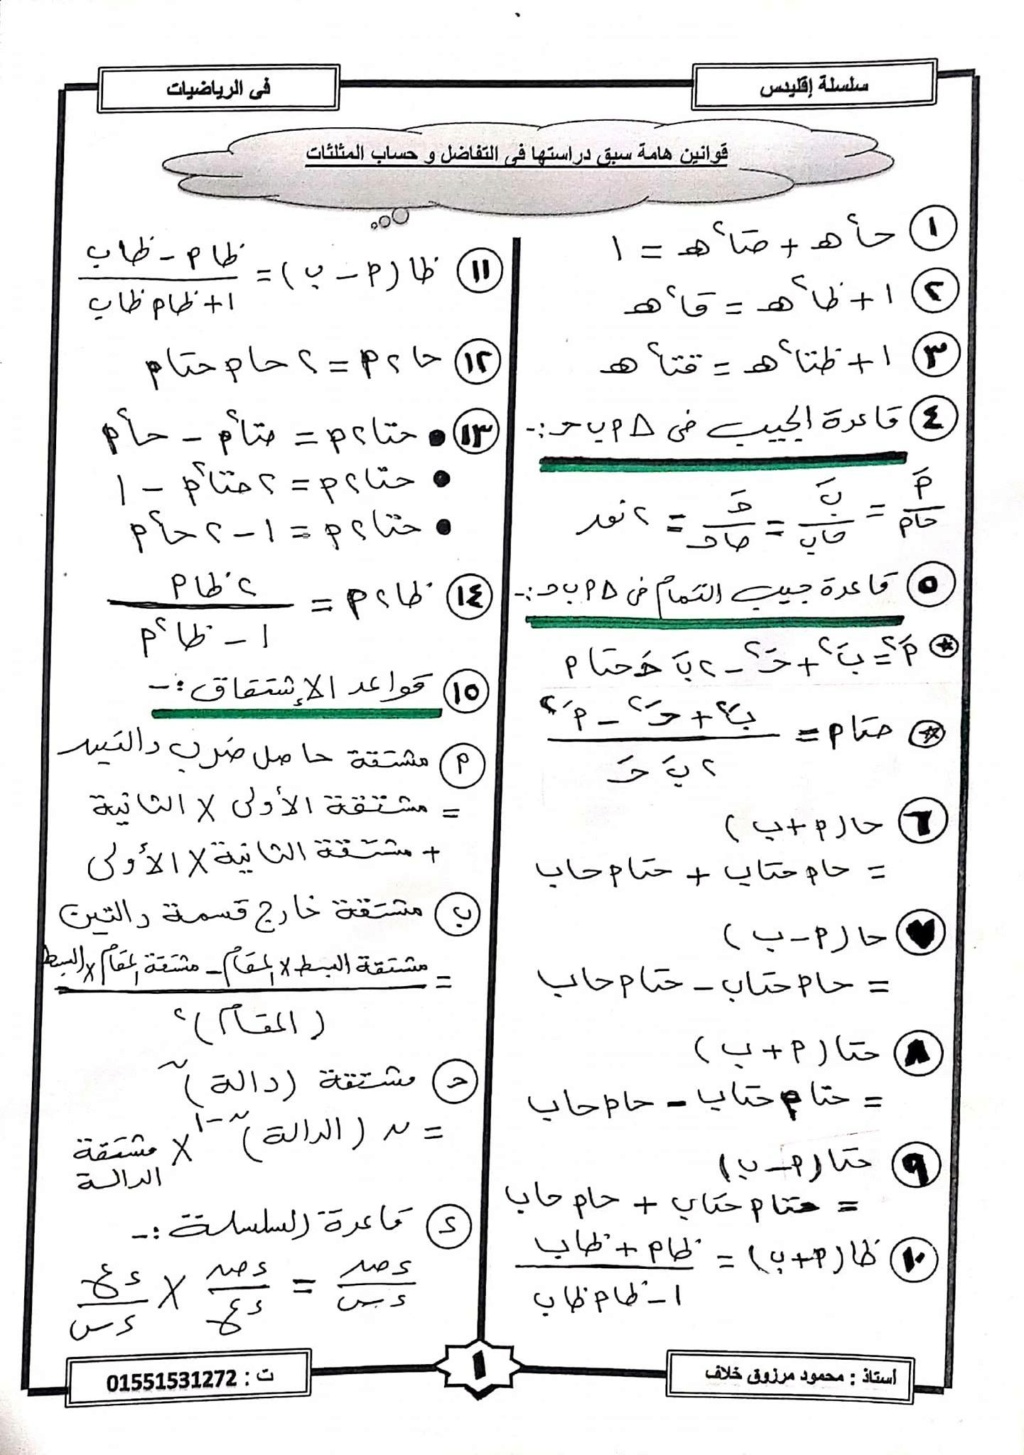 سلسلة إقليدس
فى الرياضيات
قوانين هامة سبق دراستها فى التفاضل و حساب المثلثات
١ حا٢ هـ + حتا٢ هـ = ١
٢ ١ + ظا٢ هـ = قا٢ هـ
٣ ١ + ظتا٢ هـ = قتا٢ هـ
٤ قاعدة الجيب فى Δ م ب حـ :-
مَ/حام = بَ/حاب = حـَ/حاحـ = ٢ نق
٥ قاعدة جيب التمام فى Δ م ب حـ :-
* مَ٢ = بَ٢ + حـَ٢ - ٢ بَ حـَ حتام
* حتام = بَ٢ + حـَ٢ - مَ٢ / ٢ بَ حـَ
٦ حا(م + ب)
= حام حتاب + حتام حاب
٧ حا(م - ب)
= حام حتاب - حتام حاب
٨ حتا(م + ب)
= حتام حتاب - حام حاب
٩ حتا(م - ب)
= حتام حتاب + حام حاب
١٠ ظا(م + ب) = ظام + ظاب / ١ - ظام ظاب
١١ ظا(م - ب) = ظام - ظاب / ١ + ظام ظاب
١٢ حا٢م = ٢ حام حتام
١٣ • حتا٢م = حتا٢م - حا٢م
• حتا٢م = ٢ حتا٢م - ١
• حتا٢م = ١ - ٢ حا٢م
١٤ ظا٢م = ٢ ظام / ١ - ظا٢م
١٥ قواعد الإشتقاق :-
م مشتقة حاصل ضرب دالتين
= مشتقة الأولى × الثانية
+ مشتقة الثانية × الأولى
ب مشتقة خارج قسمة دالتين
= مشتقة البسط × المقام - مشتقة المقام × البسط
(المقام)٢
حـ مشتقة (دالة)ن
= ن (الدالة)ن-١ × مشتقة
الدالة
ء قاعدة السلسلة :-
ءص/ءس = ءص/ءع × ءع/ءس
أستاذ : محمود مرزوق خلاف
١
ت : 01551531272